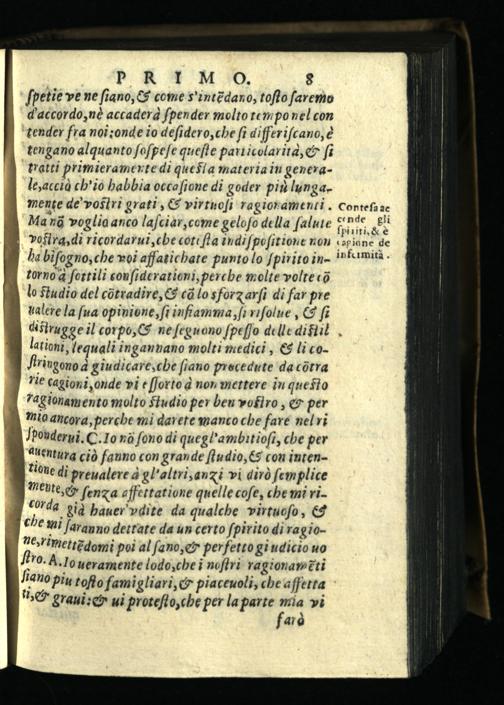 PRIMO. 8
ſpetie ve ne ſiano, & come s'intẽdano, toſto ſaremo
d'accordo, nè accaderà ſpender molto tempo nel con
tender fra noi: onde io deſidero, che ſi differiſcano, è
tengano alquanto ſoſpeſe queſte particolarità, & ſi
tratti primieramente di queſta materia in genera-
le, acciò ch'io habbia occaſione di goder più lunga-
mente de' voſtri grati, & virtuoſi ragionamenti.
Ma nõ voglio anco laſciar, come geloſo della ſalute
voſtra, di ricordarui, che coteſta indiſpoſitione non
ha biſogno, che voi affatichate punto lo ſpirito in-
torno à ſottili conſiderationi, perche molte volte cõ
lo ſtudio del cõtradire, & cõ lo sforzarſi di far pre
ualere la ſua opinione, ſi infiamma, ſi riſolue, & ſi
diſtrugge il corpo, & ne ſeguono ſpeſſo delle diſtil
lationi, lequali ingannano molti medici, & li co-
ſtringono à giudicare, che ſiano procedute da cõtra
rie cagioni, onde vi eſſorto à non mettere in queſto
ragionamento molto ſtudio per ben voſtro, & per
mio ancora, perche mi darete manco che fare nel ri
ſponderui. C. Io nõ ſono di quegl'ambitioſi, che per
auentura ciò fanno con grande ſtudio, & con inten-
tione di preualere à gl'altri, anzi vi dirò ſemplice
mente, & ſenza affettatione quelle coſe, che mi ri-
corda già hauer vdite da qualche virtuoſo, &
che mi ſaranno dettate da un certo ſpirito di ragio-
ne, rimettẽdomi poi al ſano, & perfetto giudicio uo
ſtro. A. Io ueramente lodo, che i noſtri ragionamẽti
ſiano piu toſto famigliari, & piaceuoli, che affetta
ti, & graui: & ui proteſto, che per la parte mia vi
farò
Conteſa ac
cende gli
ſpiriti, & è
cagione de
infirmità.